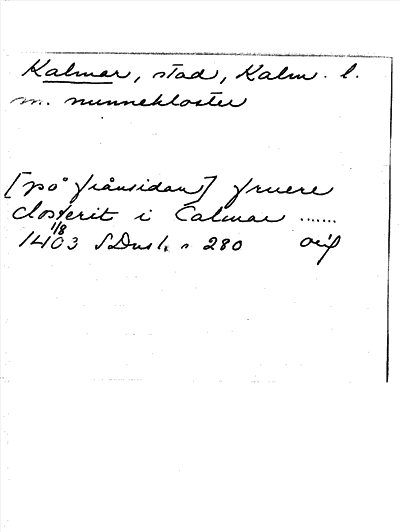 Kalmar, stad, Kalm. l.
m. nunnekloster
[på frånsidan] fruere
closterit i Calmar .......
1403 1/8 SDns 1, n 280 orig